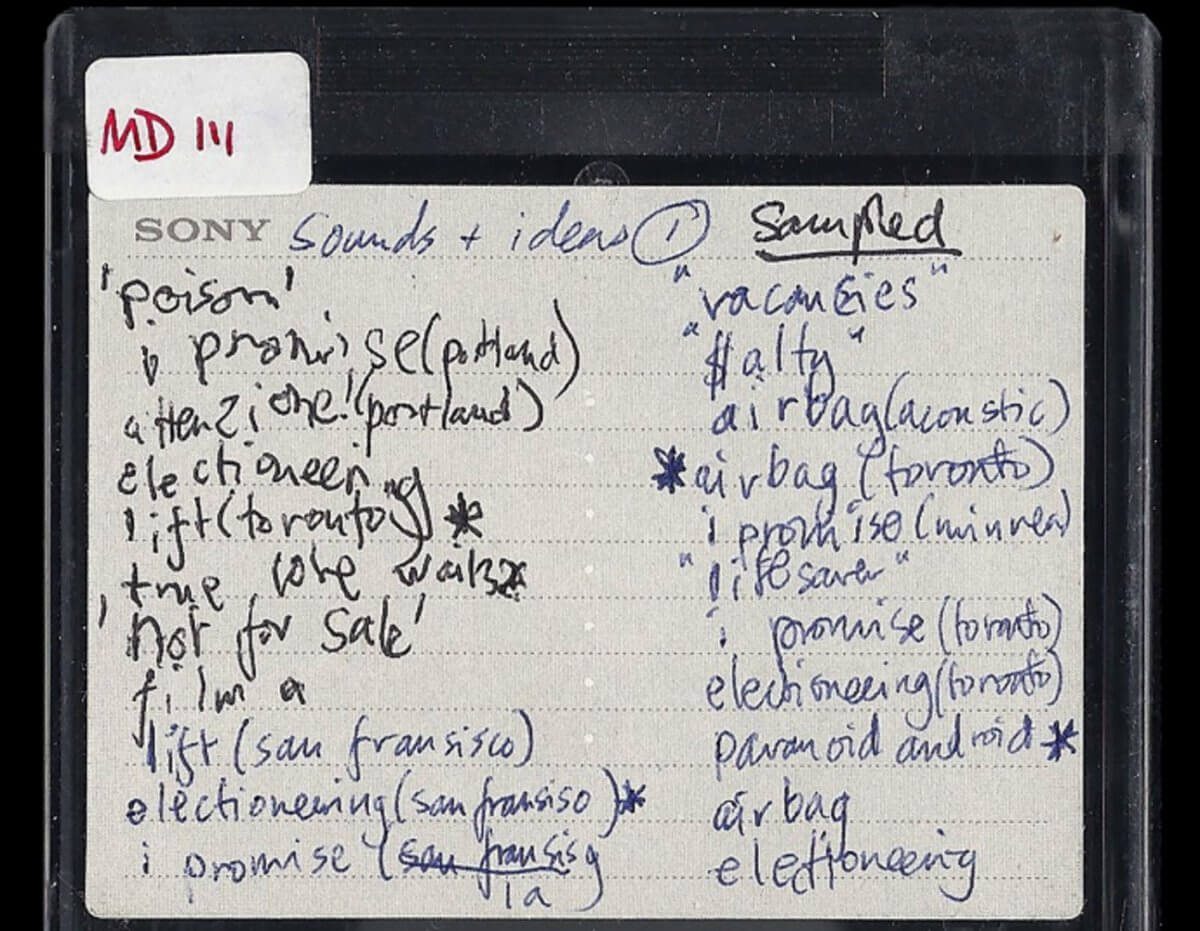 MD 111
SONY Sounds + ideas 1 Sampled
'poison'
i promise (portland)
attenzione! (portland)
electioneering
lift (toronto) *
true love waits *
'not for sale'
film a
lift (san fransisco)
electioneering (san fransiso) *
i promise (san fransis
la
"vacansies"
"$alty"
airbag (acoustic)
* airbag (toronto)
i promise (minnea)
"lifesaver"
i promise (toronto)
electioneering (toronto)
paranoid android *
airbag
electioneering